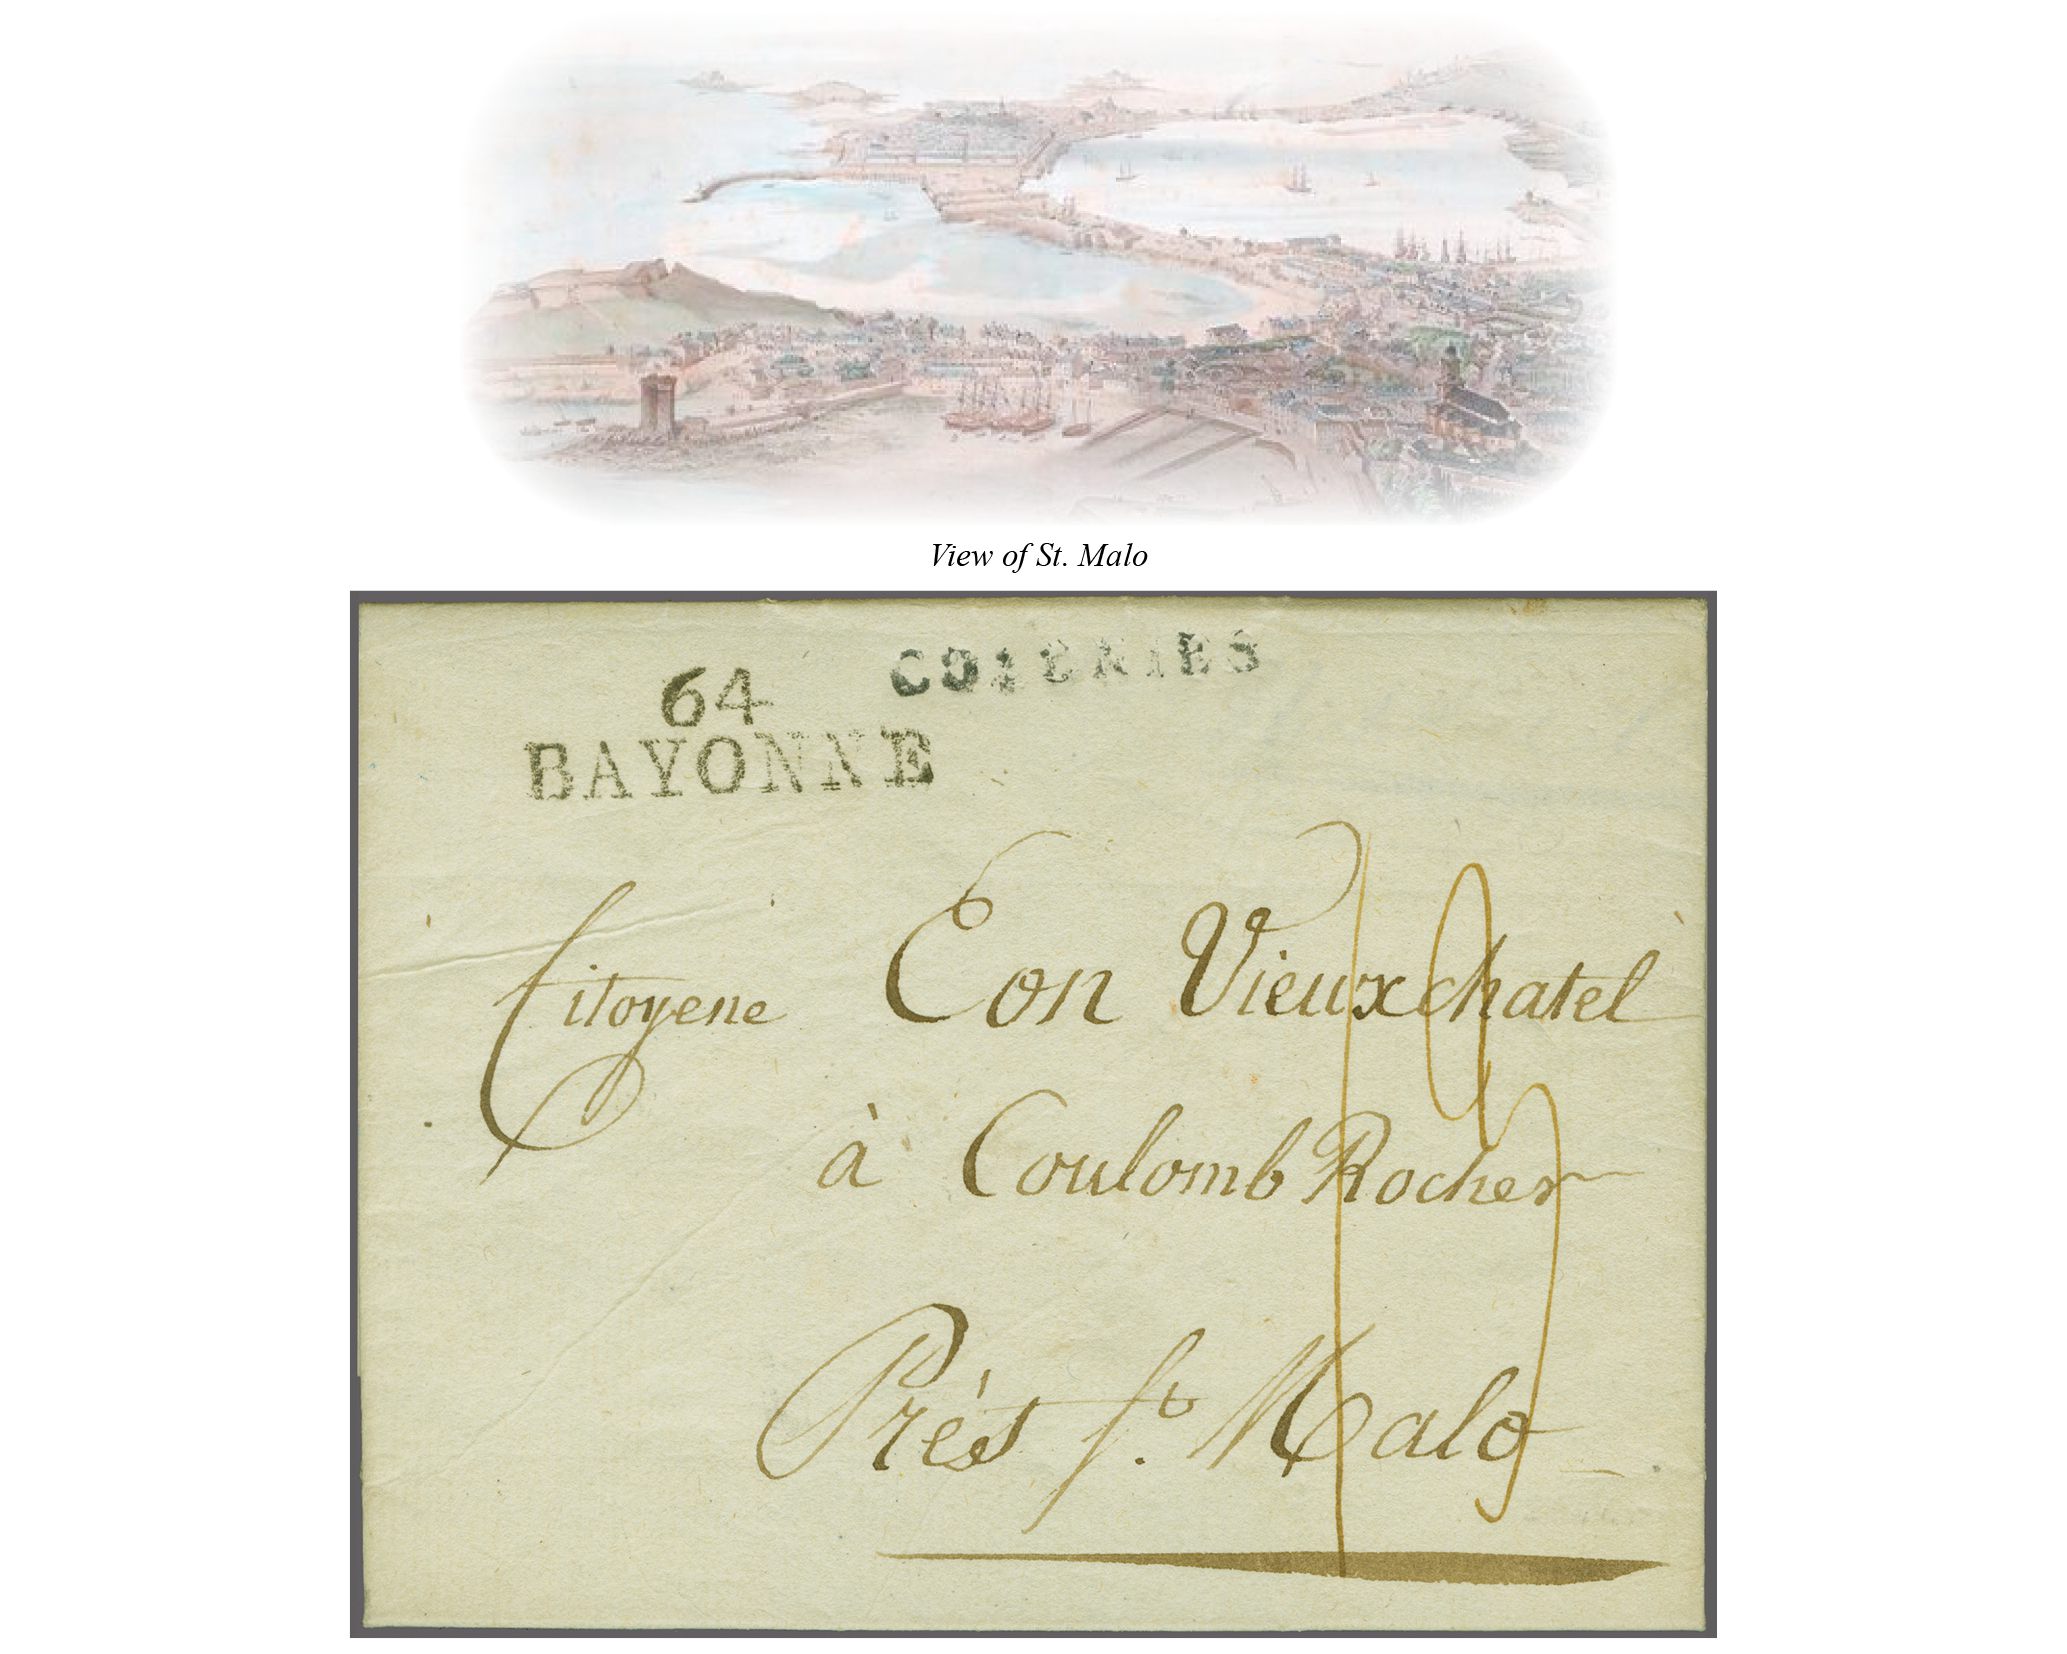 View of St. Malo
COLONIES
64
BAYONNE
Citoyene Eon Vieuxchatel
à Coulomb Rocher
Près St. Malo
19